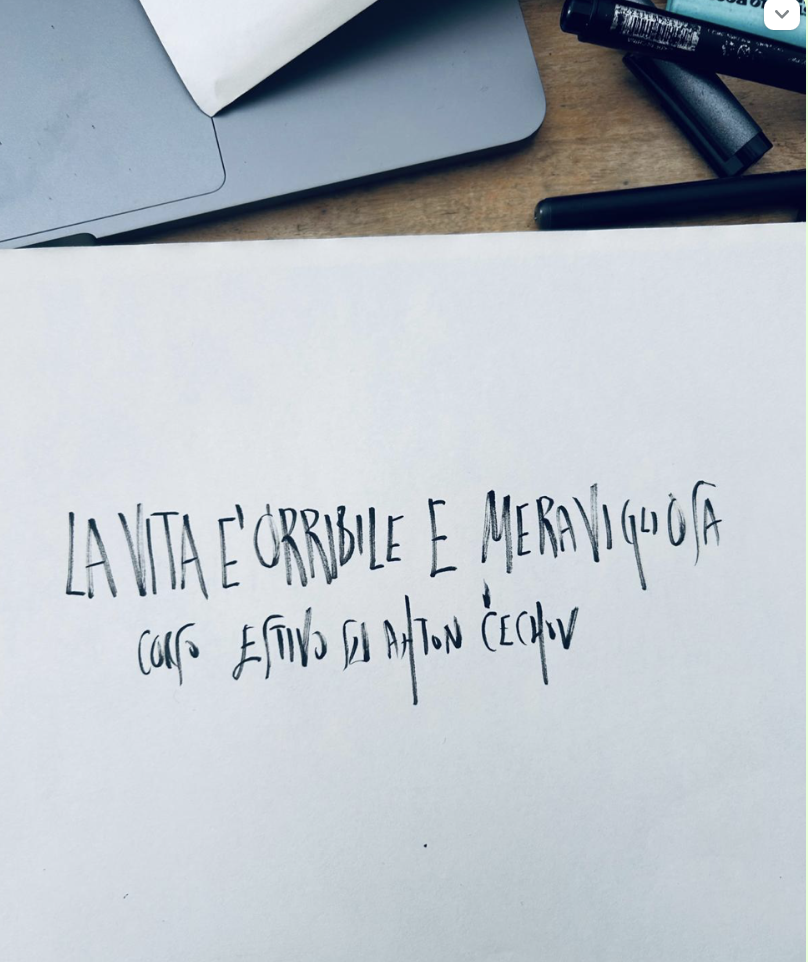 LA VITA E' ORRIBILE E MERAVIGLIOSA
CORSO ESTIVO DI ANTON ČECHOV